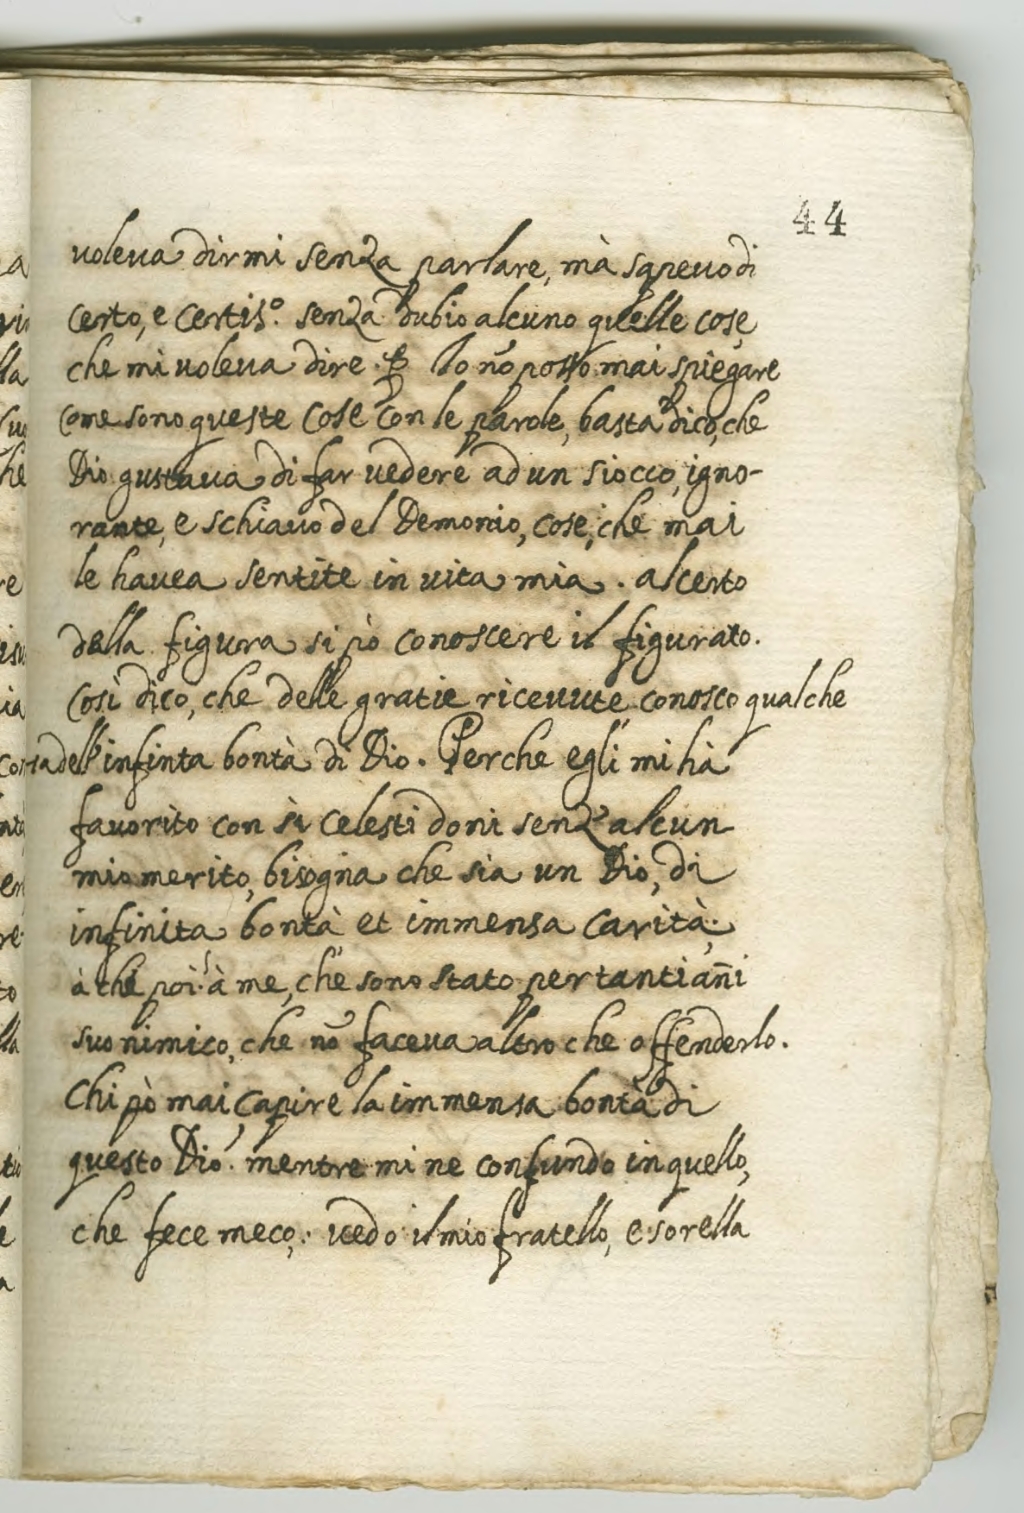 44
voleva dirmi senza parlare, mà sapevo di
certo, e certis.º senza dubio alcuno quelle cose,
che mi voleva dire. Io nõ posso mai spiegare
come sono queste cose con le parole, basta dico, che
Dio gustava di far vedere ad un siocco, igno-
rante, e schiavo del Demonio, cose, che mai
le havea sentite in vita mia. al certo
della figura si pò conoscere il figurato.
Così dico, che delle gratie ricevute conosco qualche
cosa dell'infinta bontà di Dio. Perche egli mi hà
favorito con sì celesti doni senz'alcun
mio merito, bisogna che sia un Dio, di
infinita bontà et immensa carità;
à chi poi? à me, che sono stato per tanti añi
suo nimico, che nõ faceva altro che offenderlo.
Chi pò mai capire la immensa bontà di
questo Dio? mentre mi ne confundo in quello,
che fece meco,: vedo il mio fratello, e sorella